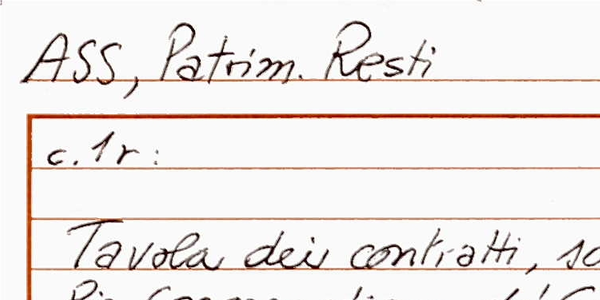 ASS, Patrim. Resti
c. 1r:
Tavola dei contratti,